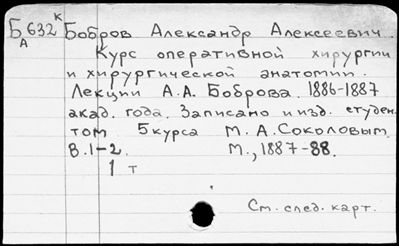 Б 632 к Бобров Александр Алексеевич.
А
Курс оперативной хирургии
и хирургической анатомии.
Лекции А.А. Боброва. 1886-1887
акад. года. Записано и изд. студен
том 5 курса М. А. Соколовым.
В. 1-2. М., 1887-88.
1 т
См. след. карт.